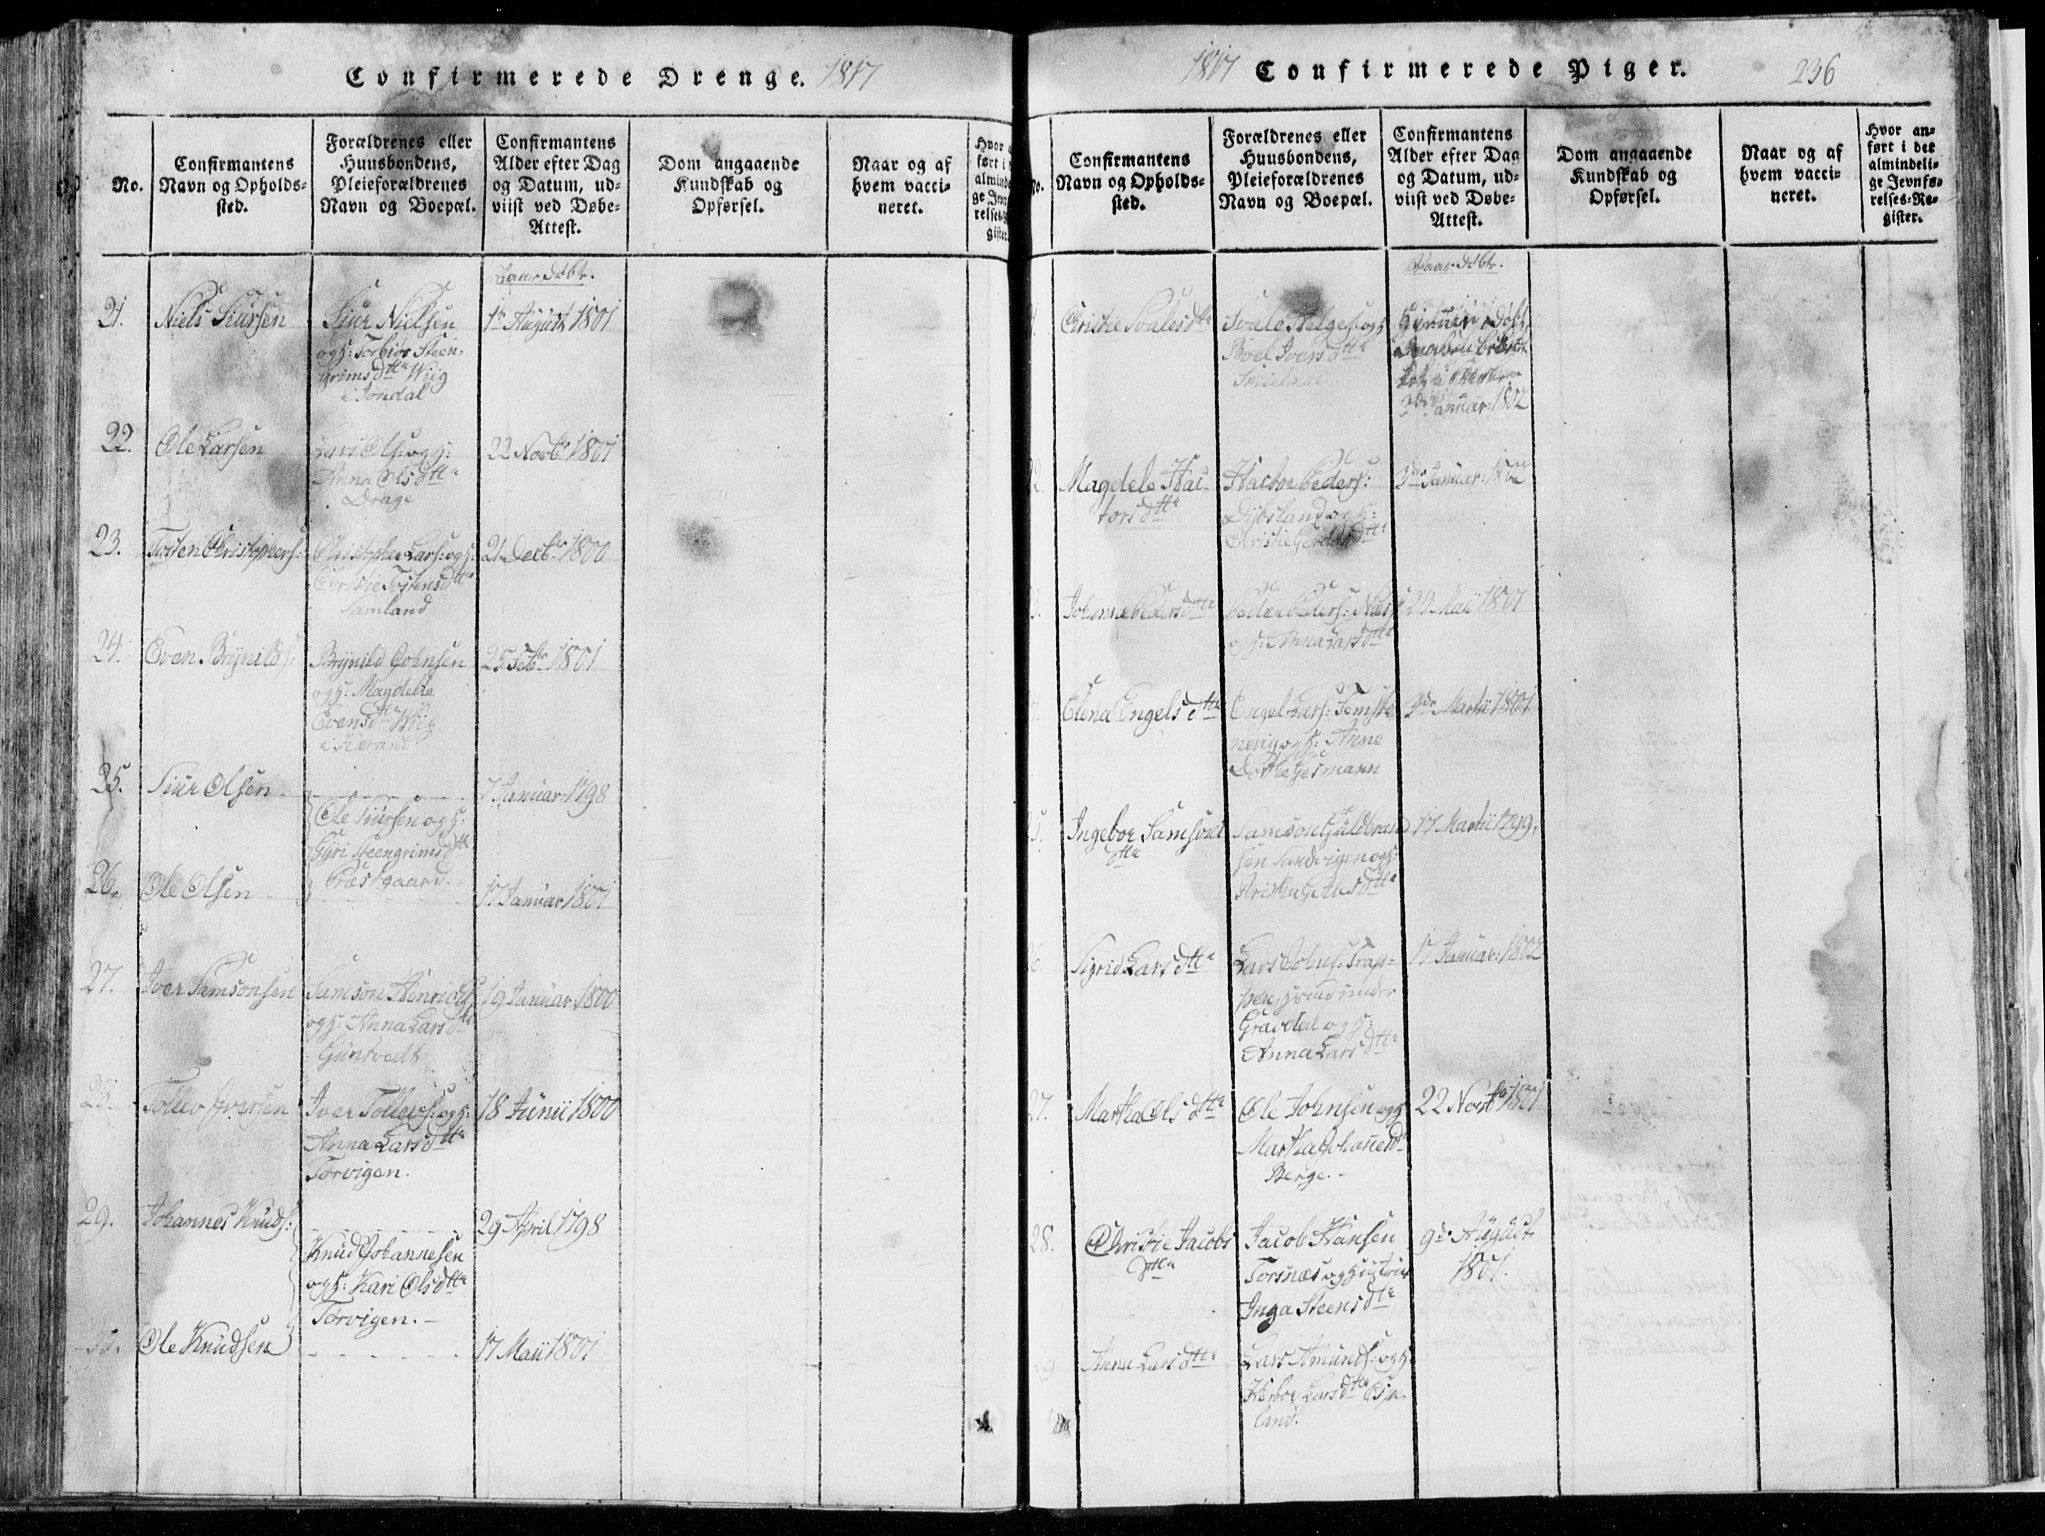 Confirmerede Drenge. 1817
No.
Confirmantens
Navn og Opholds-
sted.
Forældrenes eller
Huusbondens,
Pleieforældrenes
Navn og Boepæl.
Confirmantens
Alder efter Dag
og Datum, ud-
viist ved Døbe-
Attest.
Dom angaaende
Kundskab og
Opførsel.
Naar og af
hvem vacci-
neret.
Hvor
ført i
alminde
ge Jevn
relses
gister.
Naar döbt.
21. Niels Siursen
Siur Nielsen
og H: Torbior Steen-
grimsdtte Wiig
i Jondal
1te August 1801
22. Ole Larsen
Lars Ols: og H:
Anna Olsdtte
Drage
22 Novbr 1801
23. Tosten Christophers:
Christopher Lars: og H:
Christie Tostensdtte
Samland
21 Decbr 1800
24. Even Brynilds:
Brynild Johnsen
og H: Magdela
Evensdtte Wiig
i Herand
25 Febr 1801
25. Siur Olsen
7 Januar: 1798
Ole Siursen og H:
Gyri Steengrimsdtte
Præstgaard
26. Ole Olsen
17 Januar 1801
27. Iver Samsonsen
Samson Henrichs:
og H: Anna Larsdtte
Guntvedt
19 Januar: 1800
28. Tollev Iversen
Iver Tollevs: og H:
Anna Larsdtte
Torvigen.
18 Junii 1800
29. Johannes Knuds:
29 April 1798
Knud Johannesen
og H: Kari Olsdtte
Torvigen.
30. Ole Knudsen
17 Maii 1801
1817 Confirmerede Piger. 236
No.
Confirmantens
Navn og Opholds-
sted.
Forældrenes eller
Huusbondens,
Pleieforældrenes
Navn og Boepæl.
Confirmantens
Alder efter Dag
og Datum, ud-
viist ved Døbe-
Attest.
Dom angaaende
Kundskab og
Opførsel.
Naar og af
hvem vacci-
neret.
Hvor an-
ført i det
almindeli-
ge Jevnfø-
relses-Re-
gister.
Naar döbt.
Christie Svalesdtte
Svale Helges: og H:
Boel Iversdtte
Januar: 1802
22. Magdele Hac-
torsdtte
Hactor Peders:
Dybsland og H:
Christie
Januar: 1802
Johanna Pedersdtte
Peder Peders: Næss
og H: Anna Larsdtte
24 Maii 1801
Elena Engelsdtte
Engel Lars: Femste-
nevig og H: Anne
Dorthe Gesmann
Martii 1801
5. Ingebor Samsons
dtte
Samson Guldbrand
sen Sandvigen og H:
17 Martii 1799.
26. Sigrid Larsdtte
Lars Johns: Trap-
pen, Huusmd under
Gravdal og H:
Anna Larsdtte
17 Januar: 1802
27. Martha Olsdtte
Ole Johnsen og H
Martha Johannesdtte
Berge.
22 Novbr 1801
28. Christie Jacobs
dtte
Jacob Hansen
Torsnæs og Hustrue
Inga Steensdtte
9de August
1801.
29 Anna Larsdtte
Lars Amunds: og H:
Herbor Larsdtte Espe
land.